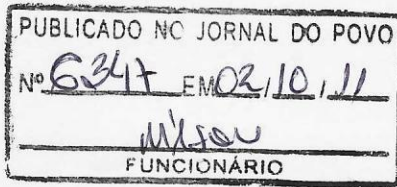 PUBLICADO NO JORNAL DO POVO
Nº 6347 EM 02/10/11
Wilson
FUNCIONÁRIO